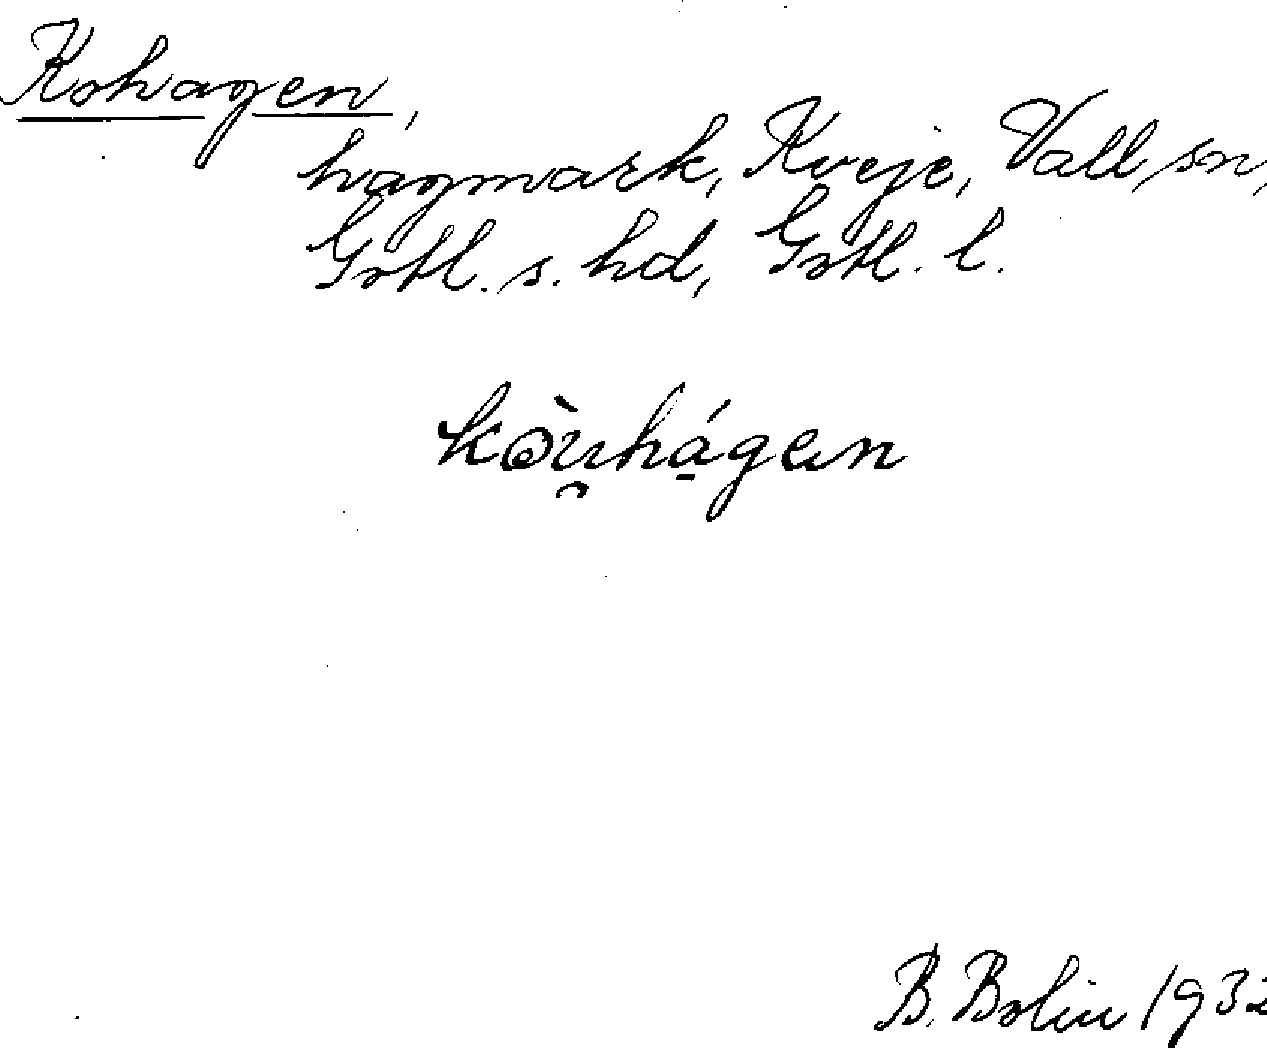 Kohagen,
hagmark, Kveje, Vall sn,
Gotl. s. hd, Gotl. l.
kòu̯há̱gen
B. Bolin 1932